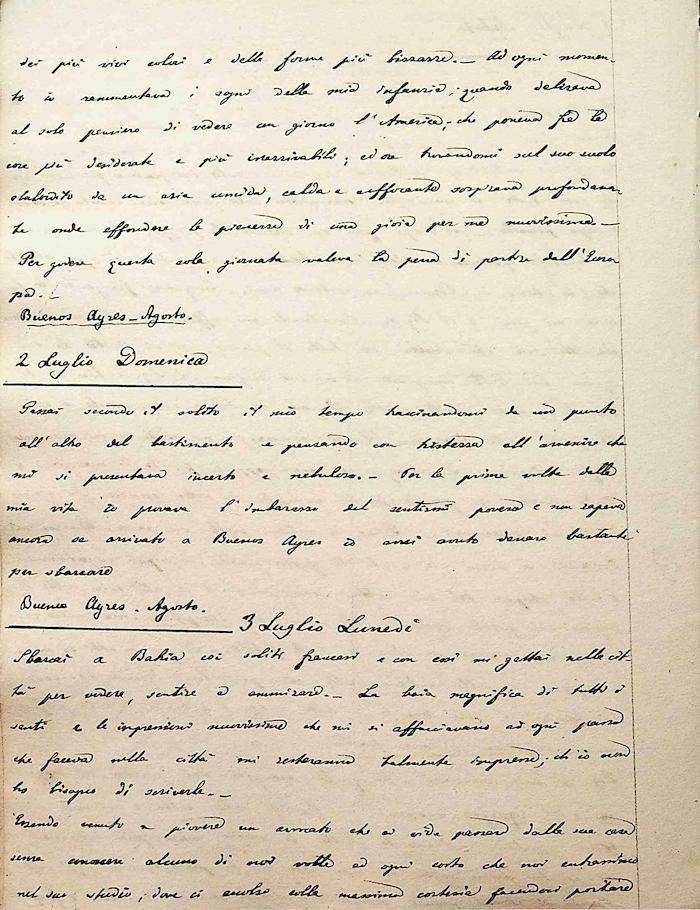 dei più vivi colori e delle forme più bizzarre. _ Ad ogni momen-
to io rammentava i sogni della mia infanzia; quando delirava
al solo pensiero di vedere un giorno l'America, che poneva fra le
cose più desiderate e più inarrivabili; ed ora trovandomi sul suo suolo
sbalordito da un aria umida, calda e soffocante sospirava profondamen-
te onde effondere la pienezza di una gioia per me nuovissima. _
Per godere questa sola giornata valeva la pena di partire dall'Euro
pa. _
Buenos Ayres - Agosto.
2 Luglio Domenica
Passai secondo il solito il mio tempo trascinandomi da un punto
all'altro del bastimento e pensando con tristezza all'avvenire che
mi si presentava incerto e nebuloso. _ Per la prima volta della
mia vita io provava l'imbarazzo del sentirmi povero e non sapeva
ancora se arrivato a Buenos Ayres io avrei avuto denaro bastante
per sbarcare
Buenos Ayres - Agosto.
3 Luglio Lunedì
Sbarcai a Bahia coi soliti francesi e con essi mi gettai nella cit-
tà per vedere, sentire e ammirare. _ La baia magnifica di tutti i
santi e le impressioni nuovissime che mi si affacciavano ad ogni passo
che faceva nella città mi resteranno talmente impresse, ch'io non
ho bisogno di scriverle. _
Essendo venuto a piovere un avvocato che ci vide passare dalla sua casa
senza conoscere alcuno di noi volle ad ogni costo che noi entrassimo
nel suo studio; dove ci accolse colla massima cortesia facendoci portare